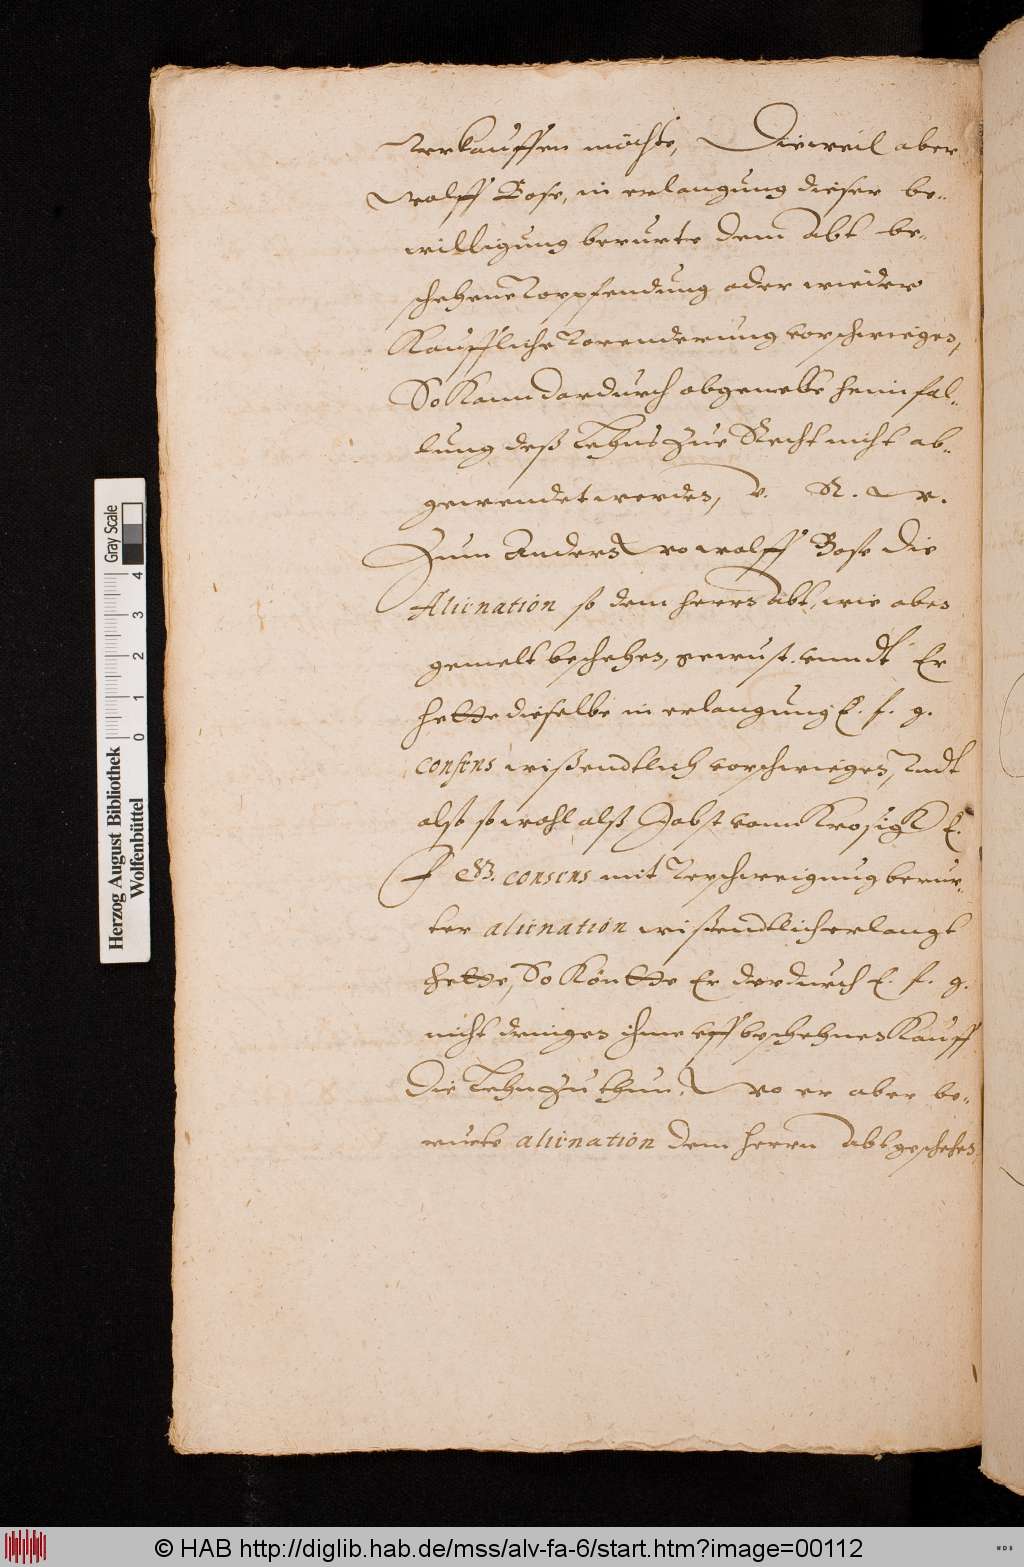 Verkauffen möchte, Dieweil aber
Wolff Bose, in erlangung dieser be-
willigung berurte dem Abt be-
schehene Vorpfendung oder wieder
Kauffliche Vorenderung vorschwiegen,
So kann dardurch obgemelte heimfal-
lung deß Lehns zue Recht nicht ab-
gewendet werden, V. R. W.
Zum Andern wo Wolff Bose die
Alienation so dem herrn Abt, wie oben
gemelt beschehen, gewust, unndt Er
hette dieselbe in erlangung E. f. g.
consens wißendtlich vorschwiegen, Undt
also so wohl alß Jobst vonn Krosigk E.
F G. consens mit Verschweigung berur-
ter alienation wißendtlich erlangt
hette, So köntte Er dardurch E. f. g.
nicht dringen ihme uff beschehnen Kauff
die Lehn zu thun, Wo er aber be-
rurte alienation dem herrn Abt geschehen
Herzog August Bibliothek
Wolfenbüttel
Gray Scale
0 1 2 3 4
© HAB http://diglib.hab.de/mss/alv-fa-6/start.htm?image=00112
WDB